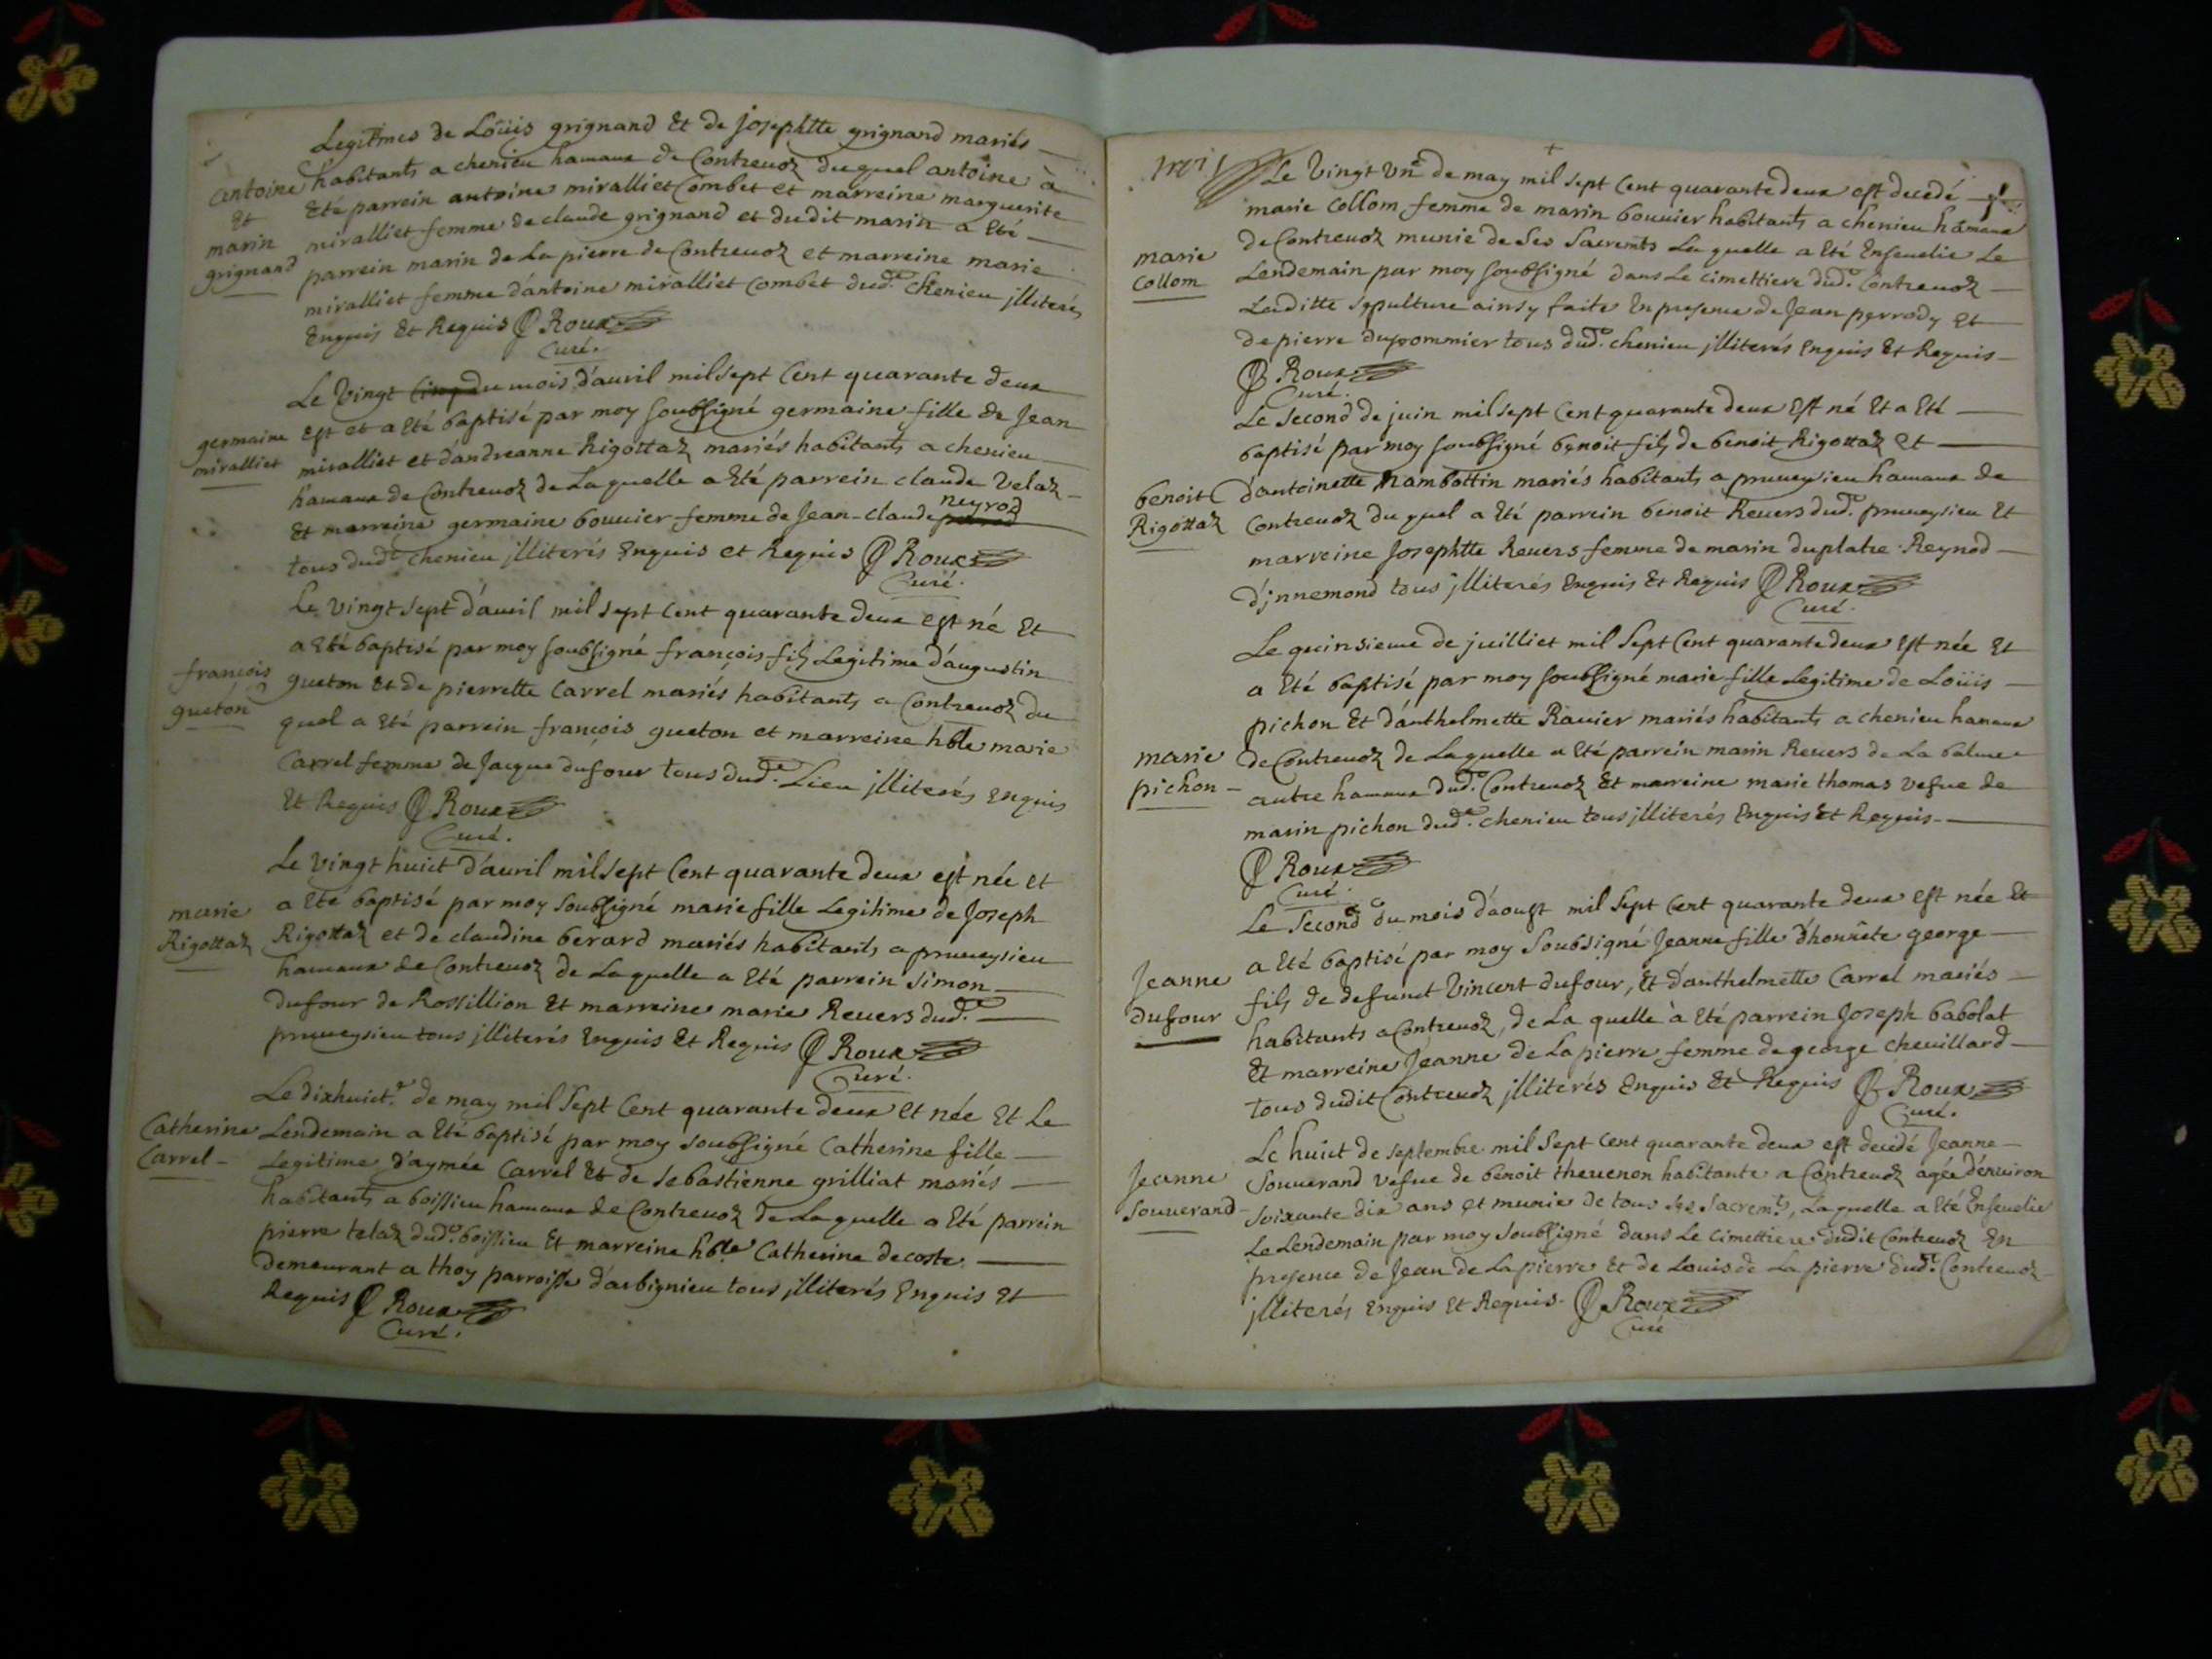 Legitimes de Loüis grignand Et de Josephtte grignand mariés
antoine habitants a chenieu hamaux de Contrevoz duquel antoine à
Et Eté parrein antoine miralliet Combet et marreine marguerite
marin miralliet femme de claude grignand et dudit marin a Eté
grignand parrein marin de La pierre de Contrevoz et marreine marie
miralliet femme d'antoine miralliet Combet dud.t chenieu jlliterés
Enquis Et Requis Roux
Curé.
Le Vingt Cinq du mois d'auril mil sept Cent quarante deux
germaine Est et a Eté baptisé par moy soubsigné germaine fille de Jean
miralliet miralliet et d'andreanne Rigottaz mariés habitants a chenieu
hamaux de Contrevoz de Laquelle a Eté parrein claude Velaz
neyrod
Et marreine germaine bouuier femme de Jean-claude
tous dud.t chenieu jlliterés Enquis et Requis Roux
Curé.
Le vingt sept d'auril mil sept Cent quarante deux est né Et
a Eté baptisé par moy soubsigné françois fils Legitime d'augustin
françois gueton Et de pierrette Carrel mariés habitants a Contrevoz du
gueton quel a Eté parrein françois gueton et marreine hble marie
Carrel femme de Jacque dufour tous dud.t Lieu jlliterés Enquis
Et Requis Roux
Curé.
Le vingt huict d'auril mil sept Cent quarante deux est née et
marie a Eté baptisé par moy soubsigné marie fille Legitime de Joseph
Rigottaz Rigottaz et de claudine berard mariés habitants a pruueysieu
hamaux de Contrevoz de Laquelle a Eté parrein Simon
dufour de Rossillion Et marreine marie Reuers dud.t
pruueysieu tous jlliterés Enquis Et Requis Roux
Curé.
Le dixhuict.e de may mil Sept Cent quarante deux Et née Et Le
Catherine Lendemain a Eté baptisé par moy soubsigné Catherine fille
Carrel Legitime d'aymée Carrel Et de Sebastienne grilliat mariés
habitants a boissieu hamaux de Contrevoz de Laquelle a Eté parrein
pierre telaz dud.t boissieu Et marreine hble Catherine decoste
demeurant a thoy parroisse d'arbignieu tous jlliterés Enquis Et
Requis Roux
Curé.
Le Vingt Un.e de may mil sept Cent quarante deux est decedé
marie Collom femme de marin bouuier habitants a chenieu hamaux
marie de Contrevoz munie de Ses Sacrements La quelle a Eté Enseuelie Le
Collom Lendemain par moy soubsigné dans Le cimettiere dud.t Contrevoz
Laditte sepulture ainsy faite En presence de Jean perrody Et
de pierre dupommier tous dud.t chenieu jlliterés Enquis Et Requis
Roux
Curé.
Le Second de juin mil sept Cent quarante deux Est né Et a Eté
baptisé par moy soubsigné benoit fils de benoit Rigottaz et
benoit d'antoinette Nambottin mariés habitants a pruueysieu hamaux de
Rigottaz Contrevoz du quel a Eté parrein benoit Reuers dud.t pruueysieu Et
marreine Josephtte Reuers femme de marin duplatre Reynod
d'jnnemond tous jlliterés Enquis Et Requis Roux
Curé.
Le quinsieme de juilliet mil Sept Cent quarante deux Est née Et
a Eté baptisé par moy soubsigné marie fille Legitime de Loüis
pichon Et d'anthelmette Rauier mariés habitants a chenieu hamaux
marie de Contrevoz de Laquelle a Eté parrein marin Reuers de La balme
pichon autre hamaux dud.t Contrevoz Et marreine marie thomas vefue de
marin pichon dud.t chenieu tous jlliterés Enquis Et Requis
Roux
Curé.
Le Second du mois d'aoust mil Sept Cent quarante deux est née Et
a Eté baptisé par moy Soubsigné Jeanne fille d'honnête george
Jeanne fils de defunct Vincent dufour, Et d'anthelmette Carrel mariés
dufour habitants a Contrevoz, de La quelle à Eté parrein Joseph babolat
Et marreine Jeanne de Lapierre femme de george cheuillard
tous dudit Contrevoz jlliterés Enquis Et Requis Roux
Curé.
Le huict de septembre mil Sept Cent quarante deux est decedé Jeanne
Jeanne Souuerand vefue de benoit theuenon habitante a Contrevoz agée d'enuiron
Souuerand Soixante dix ans et munie de tous ses Sacrem.ts, Laquelle a Eté Enseuelie
Le Lendemain par moy soubsigné dans Le cimettiere dudit Contrevoz En
presence de Jean de Lapierre Et de Louis de La pierre dud.t Contrevoz
jlliterés Enquis Et Requis. Roux
Curé